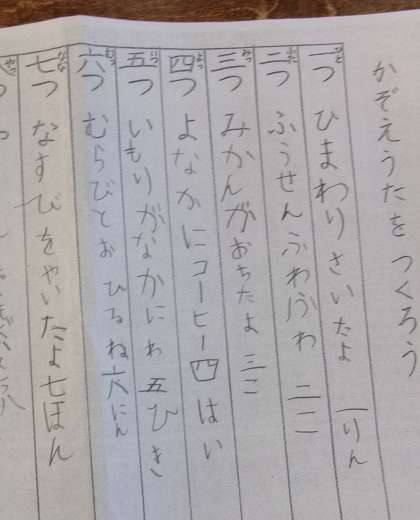 かぞえうたを つくろう
一つ ひまわりさいたよ 一りん
二つ ふうせんふわふわ 二こ
三つ みかんがおちたよ 三こ
四つ よなかにコーヒー四はい
五つ いもりがなかにわ五ひき
六つ むらびとおひるね六にん
七つ なすびをやいたよ七ほん